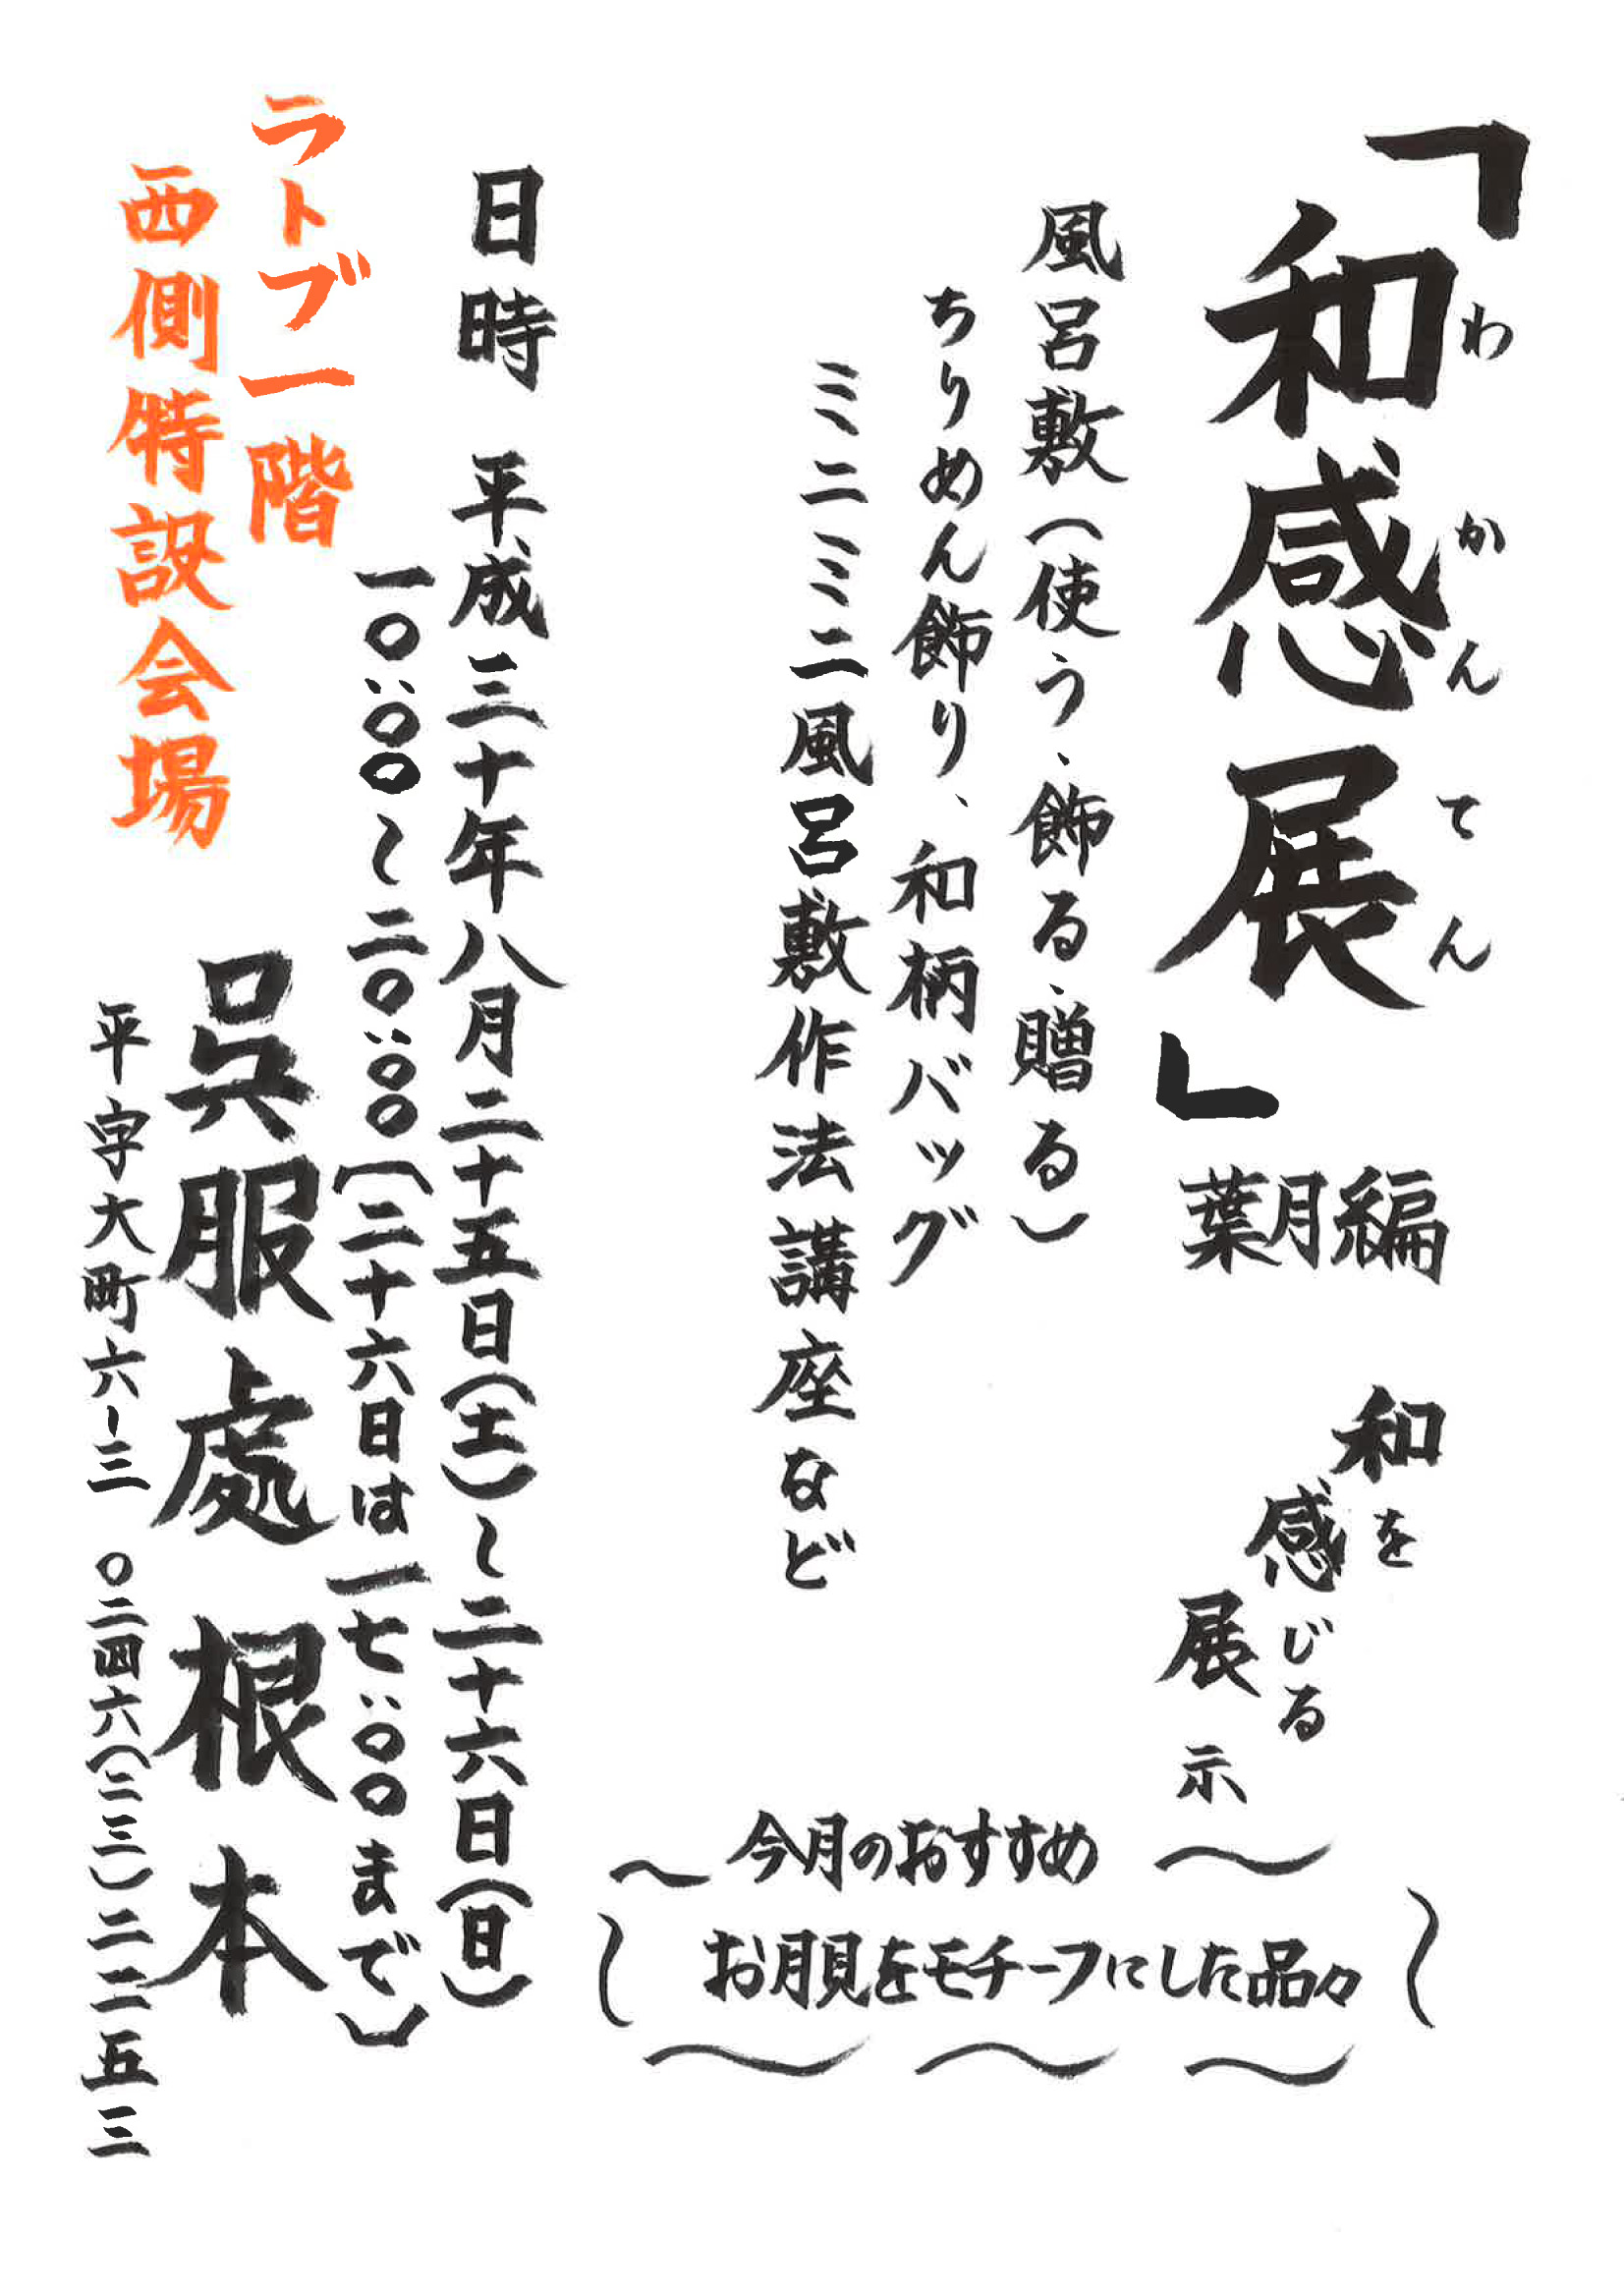 「和感展」葉月編
わかんてん
和を
感じる
展示
風呂敷(使う、飾る、贈る)
ちりめん飾り、和柄バッグ
ミニミニ風呂敷作法講座など
今月のおすすめ
お月見をモチーフにした品々
日時 平成三十年八月二十五日(土)~二十六日(日)
一〇:〇〇~二〇:〇〇(二十六日は一七:〇〇まで)
ラトブ一階
西側特設会場
呉服處 根本
平字大町六-三 〇二四六(二三)二二五三